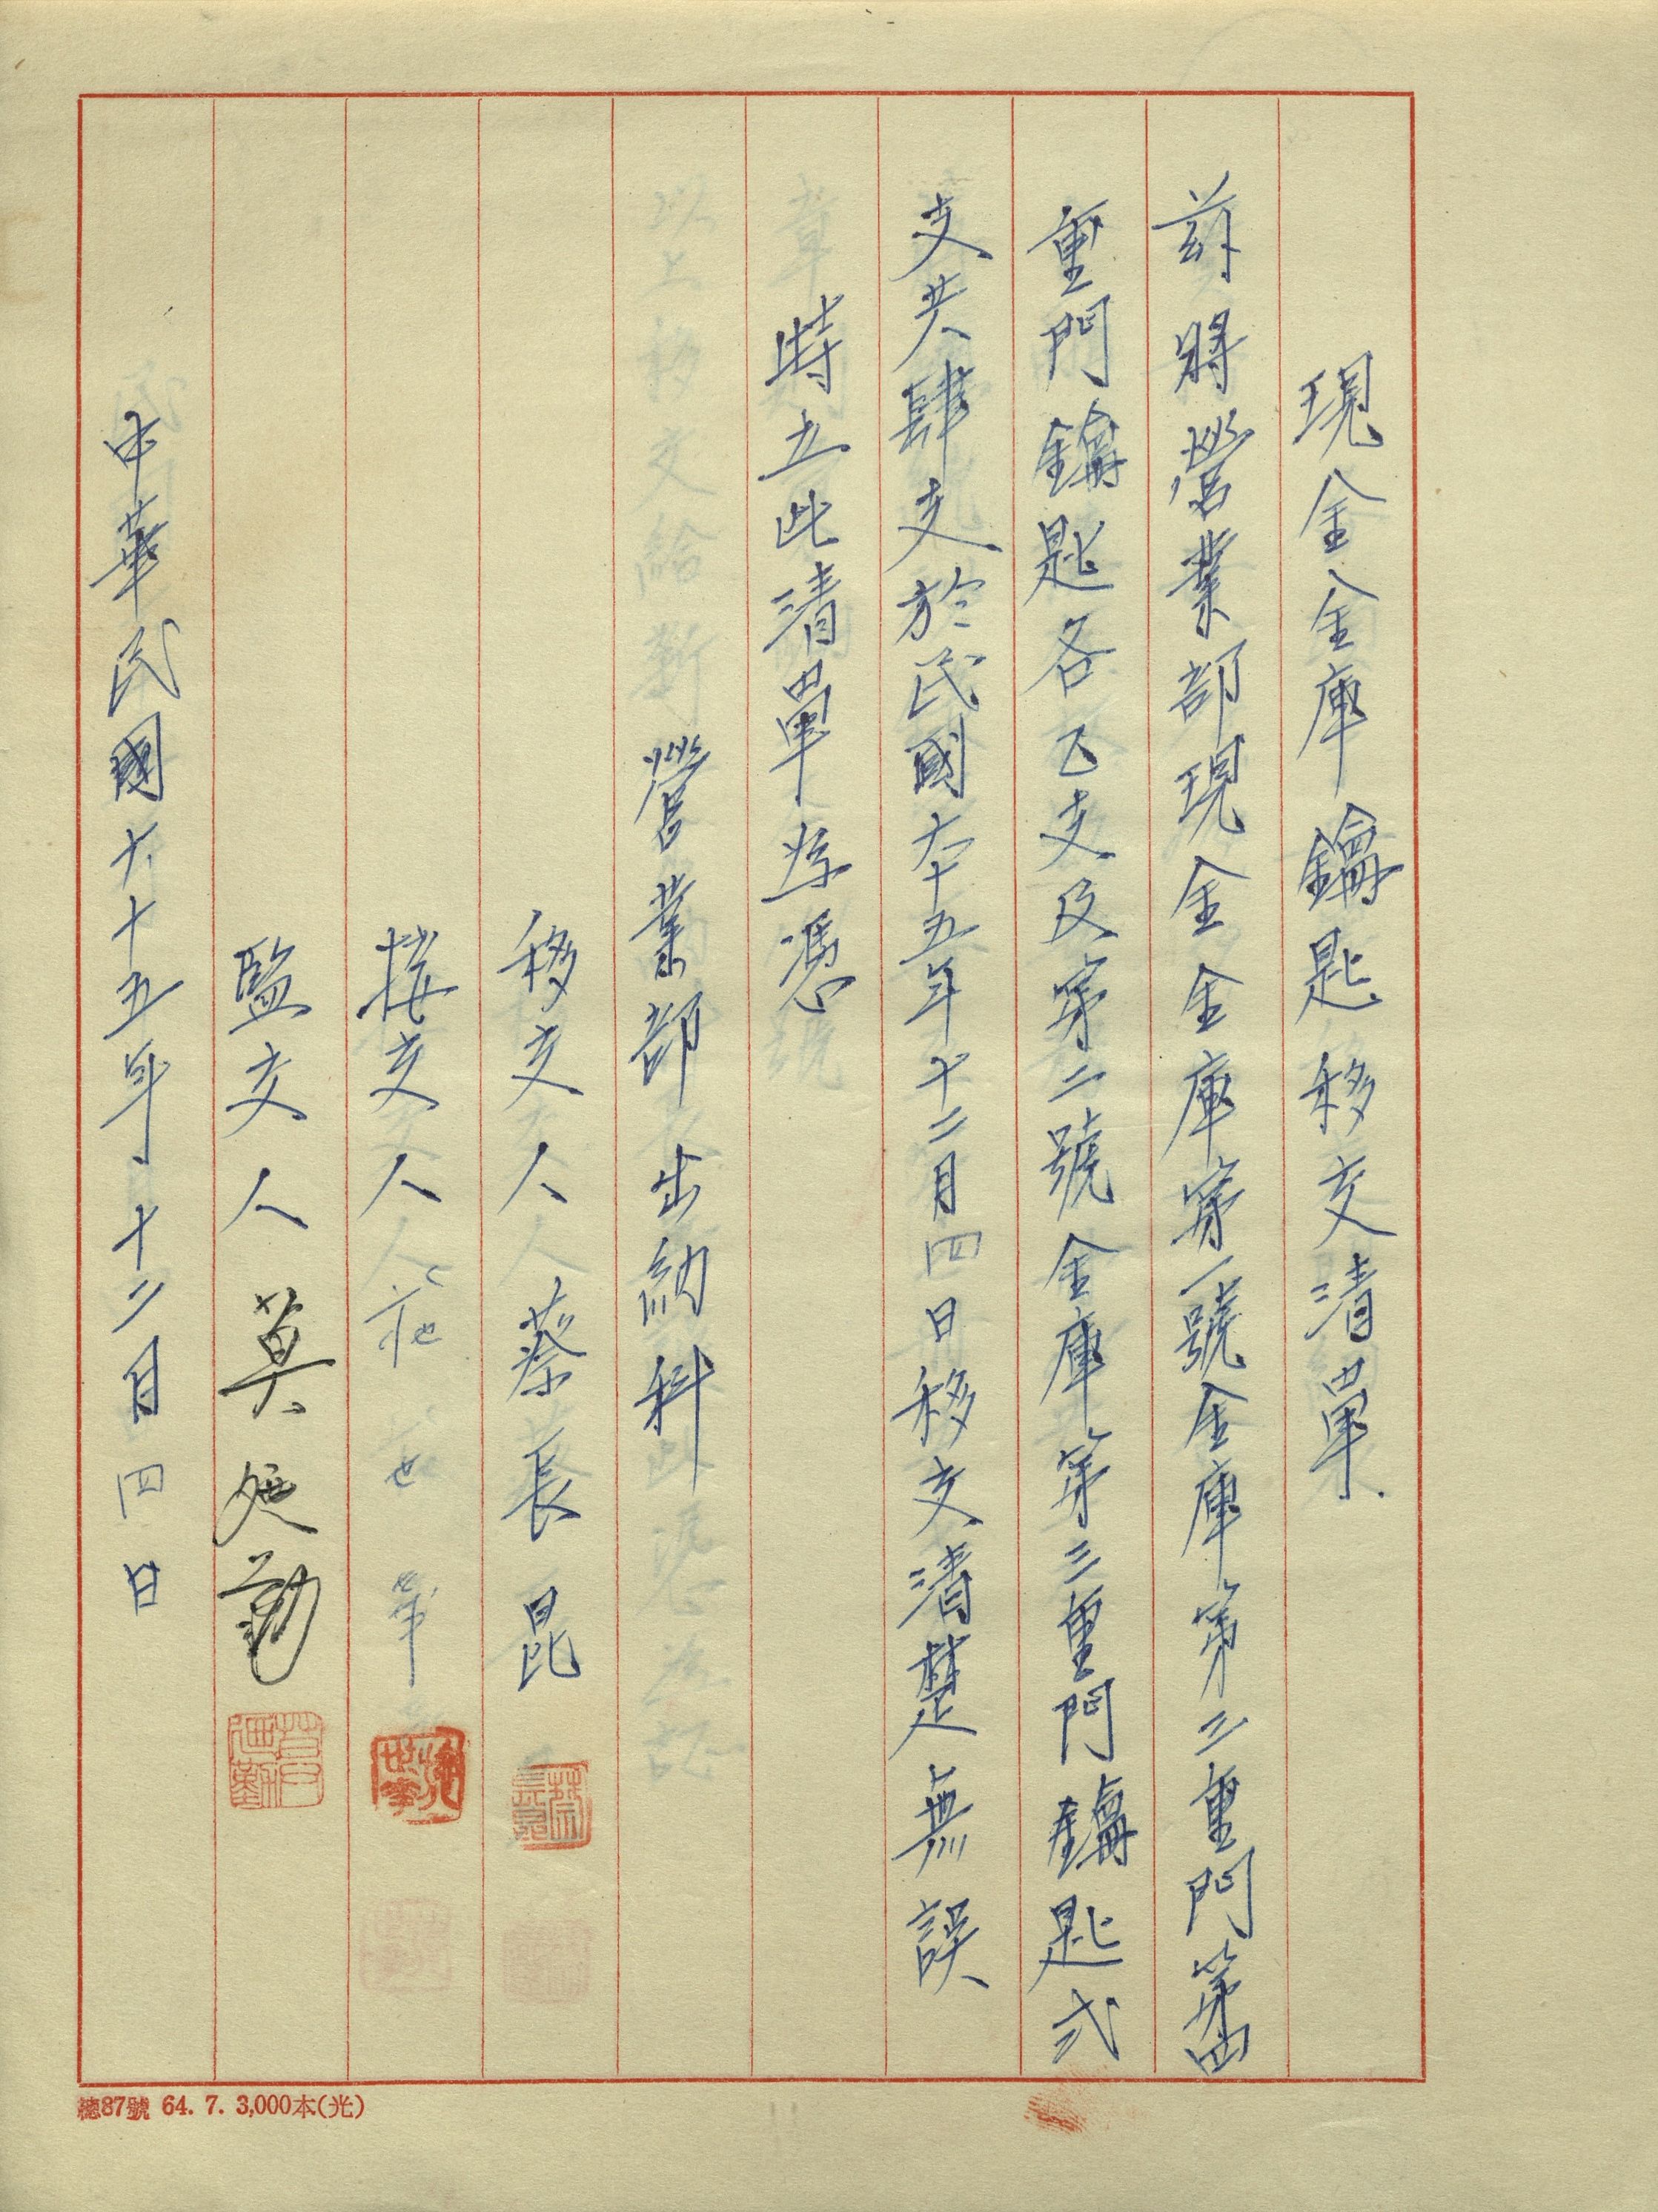 現金金庫鑰匙移交清單
茲將營業部現金金庫第一號金庫第二重門第四
重門鑰匙各乙支及第二號金庫第三重門鑰匙弍
支共肆支於民國六十五年十二月四日移交清楚無誤
特立此清單為憑
營業部出納科
移交人 蔡長昆
接交人 莊世華
監交人 莫廸勤
中華民國六十五年十二月四日
總87號 64. 7. 3,000本(光)